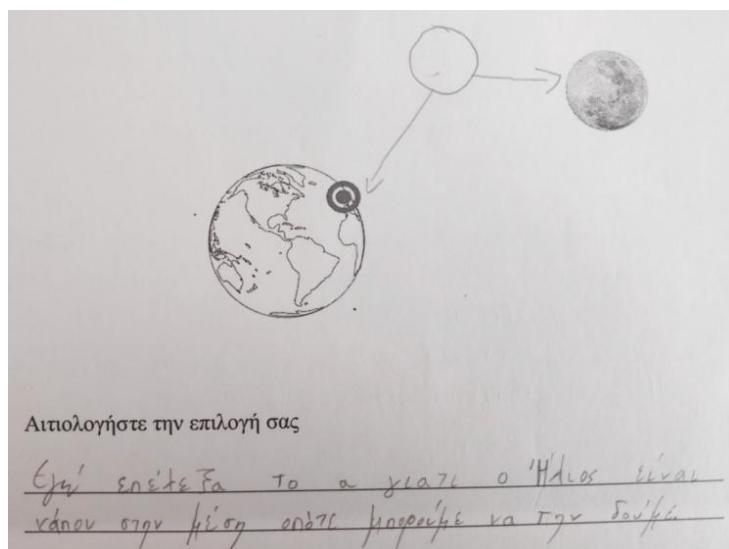 Αιτιολογήστε την επιλογή σας
Εγώ επέλεξα το α γιατι ο Ήλιος είναι
κάπου στην μέση οπότε μπορούμε να την δούμε.